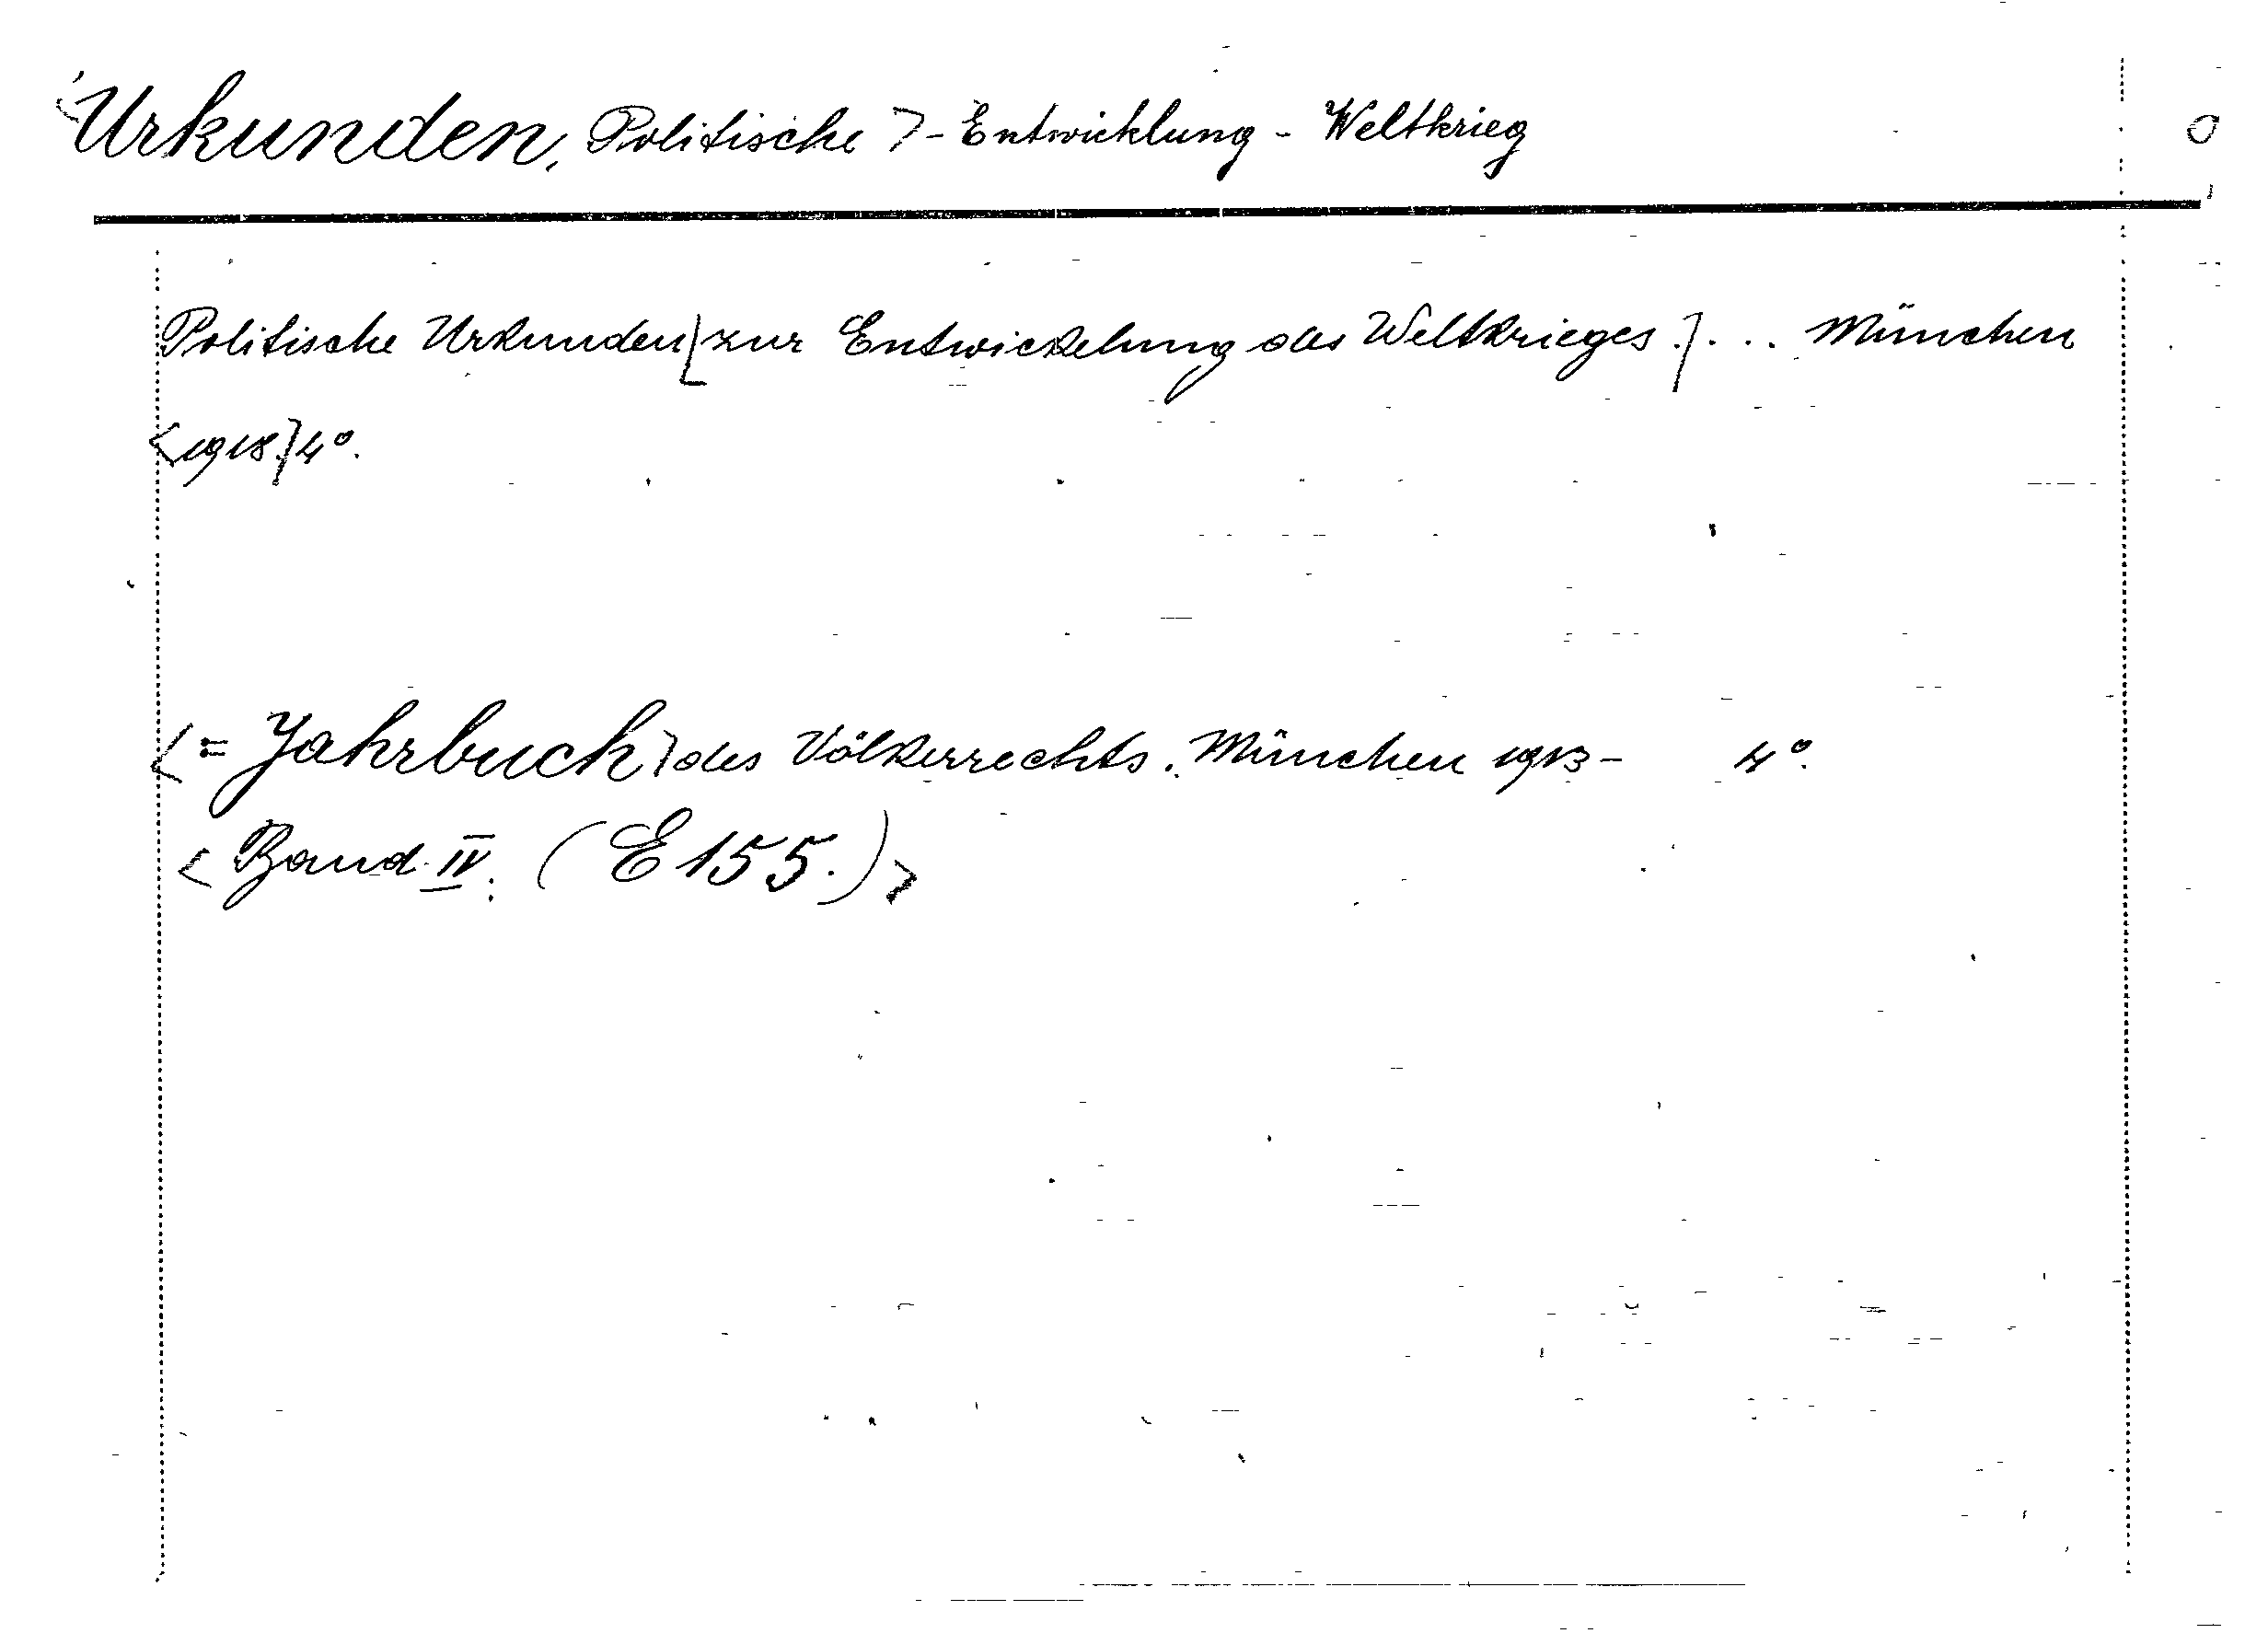 <Urkunden, Politische > - Entwicklung - Weltkrieg
Politische Urkunden [zur Entwickelung des Weltkrieges.] ... München
<1918.] 4º.
<= Jahrbuch > des Völkerrechts. München 1913- 4º.
<Band IV. (E 155.)>